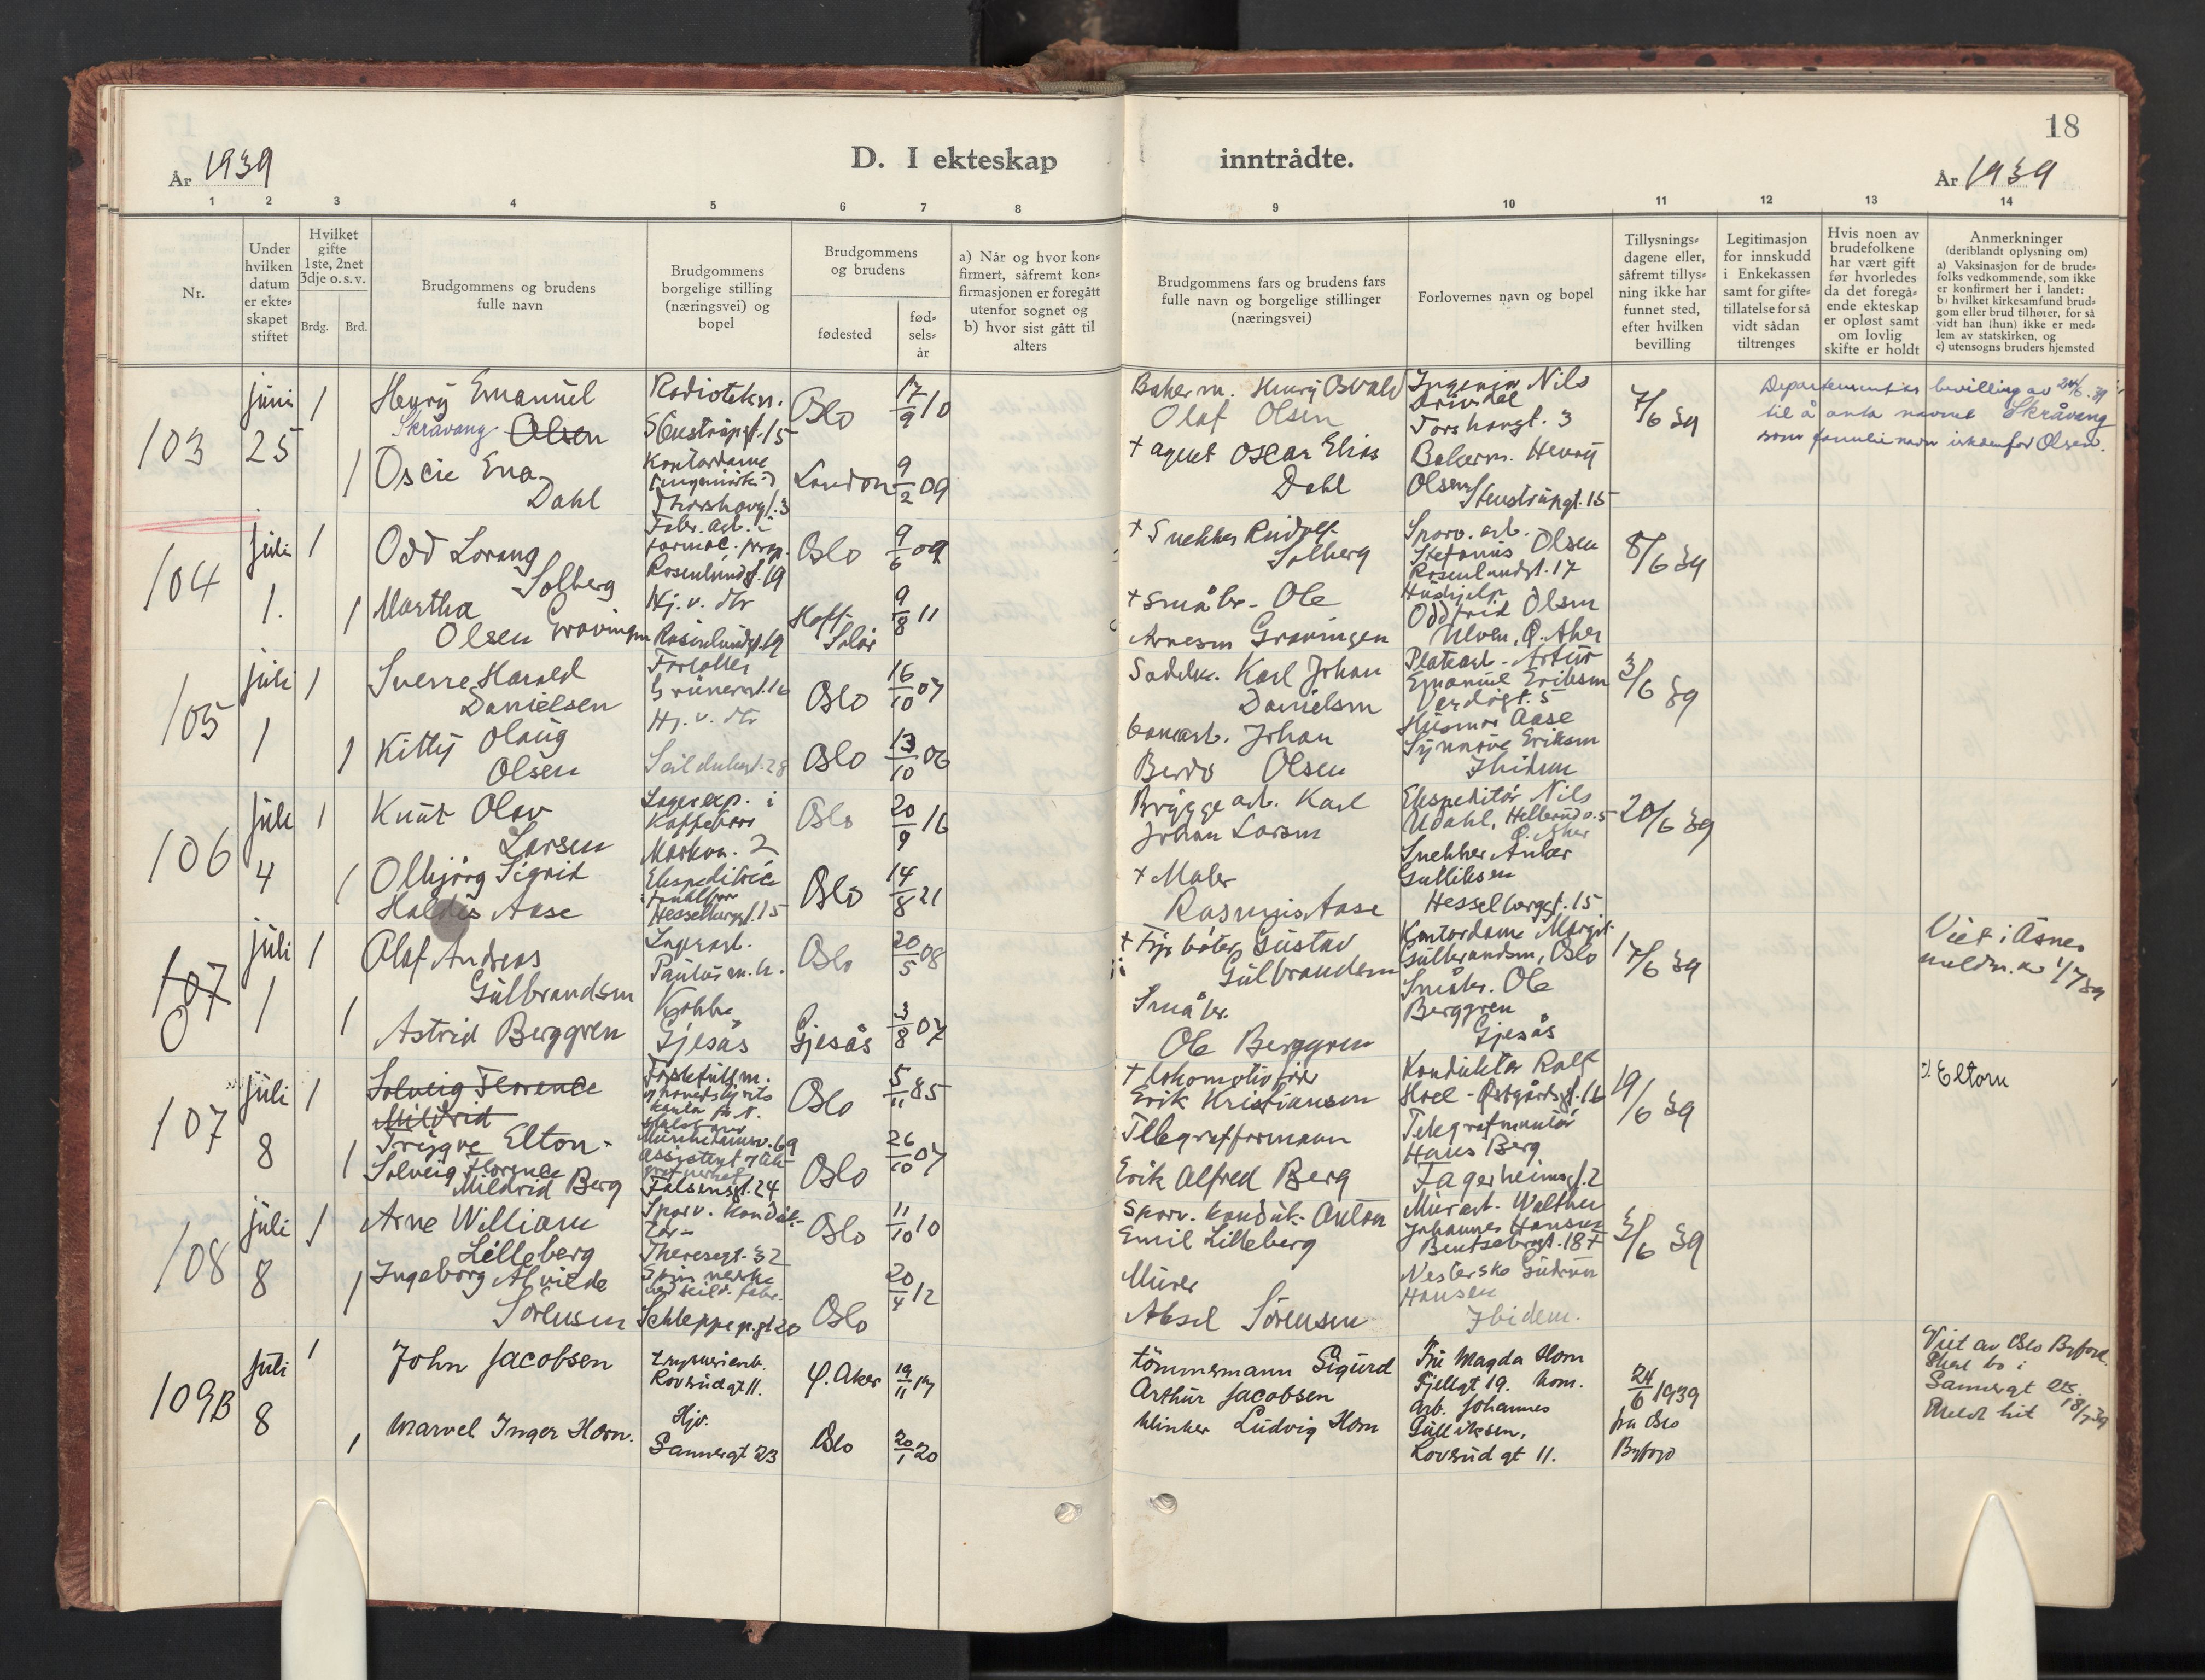 18
År 1939
D. I ekteskap inntrådte.
År 1939
1 2 3 4 5 6 7 8 9 10 11 12 13 14
Nr.
Under
hvilken
datum
er ekte-
skapet
stiftet
Hvilket
gifte
1ste, 2net
3dje o. s. v.
Brdg. Brd.
Brudgommens og brudens
fulle navn
Brudgommens
borgelige stilling
(næringsvei) og
bopel
Brudgommens
og brudens
fødested
fød-
sels-
år
a) Når og hvor kon-
firmert, såfremt kon-
firmasjonen er foregått
utenfor sognet og
b) hvor sist gått til
alters
Brudgommens fars og brudens fars
fulle navn og borgelige stillinger
(næringsvei)
Forlovernes navn og bopel
Tillysnings-
dagene eller,
såfremt tillys-
ning ikke har
funnet sted,
efter hvilken
bevilling
Legitimasjon
for innskudd
i Enkekassen
samt for gifte-
tillatelse for så
vidt sådan
tiltrenges
Hvis noen av
brudefolkene
har vært gift
før hvorledes
da det foregå-
ende ekteskap
er opløst samt
om lovlig
skifte er holdt
Anmerkninger
(deriblandt oplysning om)
a) Vaksinasjon for de brude-
folks vedkommende, som ikke
er konfirmert her i landet:
b) hvilket kirkesamfund brud-
gom eller brud tilhører, for så
vidt han (hun) ikke er med-
lem av statskirken, og
c) utensogns bruders hjemsted
103
juni
25
1
Henry Emanuel
Skråvang Olsen
Radiotekn.
Stenstrupgt. 15
Oslo
17/9 10
Bakerm. Henry Osvald
Olaf Olsen
Ingeniør Nils
Torshovgt. 3
7/6 39
Departementets bevilling av 24/6 39
til å anta navnet Skråvang
som familienavn istedenfor Olsen.
1
Oscie Ena
Dahl
Kontordame
Thorshovgt. 3
London
9/2 09
+ agent Oscar Elias
Dahl
Bakerm. Henry
Olsen Stenstrupgt. 15
104
juli
1.
1
Odd Lorang
Solberg
Fabr. arb. i
farmac. prep.
Rosenlundgt. 19
Oslo
9/6 09
+ Snekker Rudolf
Solberg
Sporv. arb.
Stefanus Olsen
Rosenlundgt. 17
8/6 39
1
Martha
Olsen Gravingen
Hj. v. dtr
Rosenlundgt. 19
Hoff
Solør
9/8 11
+ småbr. Ole
Arnesen Gravingen
Hushjelp
Oddfrid Olsen
Ulven, Ø. Aker
105
juli
1
1
Sverre Harald
Danielsen
Forgyller
Grünersgt. 16
Oslo
16/10 07
Sadelm. Karl Johan
Danielsen
Platearb. Artur
Emanuel Eriksen
Verdigt. 5
3/6 39
1
Kitty Olaug
Olsen
Hj. v. dtr
Seilduksgt. 28
Oslo
13/10 06
Johan
Olsen
Husmor Aase
Synnøve Eriksen
Ibidem
106
juli
4
1
Knut Olav
Larsen
Lagerexp. i
Kaffeforr.
Markv. 2
Oslo
20/9 16
Bryggearb. Karl
Johan Larsen
Ekspeditør Nils
Udahl, Hellerudv. 5
Ø. Aker
20/6 39
1
Olbjørg Sigrid
Haldis Aase
Ekspeditrice
Hesselbergt. 15
Oslo
14/8 21
+ Maler
Rasmus Aase
Snekker Anker
Gulliksen
Hesselbergt. 15
107
0
juli
1
1
Olaf Andreas
Gulbrandsen
Lagerarb.
Paulus m.h.
Oslo
20/5 08
+ Fyrbøter Gustav
Gulbrandsen
Kontordame Margit
Gulbrandsen, Oslo
17/6 39
Viet i Åsnes
meldn. av 1/7 39
1
Astrid Berggren
Kokke
Gjesås
Gjesås
3/8 07
Småbr.
Ole Berggren
Småbr. Ole
Berggren
Gjesås
107
juli
8
1
Solveig Florence
Mildrid
Trygve Elton
Oslo
5/11 85
+ lokomotivfører
Erik Kristiansen
Konduktør Ralf
Hoel - Østgårdsgt. 16
19/6 39
Eltorn
1
Solveig Florence
Mildrid Berg
Falsensgt. 24
Oslo
26/10 07
Telegrafformann
Erik Alfred Berg
Telegrafmontør
Hans Berg
Fagerheimgt. 2
108
juli
8
1
Arne William
Lilleberg
Sporv. konduk-
tør
Theresegt. 32
Oslo
11/10 10
Sporv. konduk. Anton
Emil Lilleberg
Murarb. Walther
Johannes Hansen
Bentsebrugt. 18 F
3/6 39
1
Ingeborg Alvilde
Sørensen
Schleppegr.gt 20
Oslo
20/4 12
Murer
Aksel Sørensen
Vesterske Gudrun
Hansen
Ibidem.
109B
juli
8
1
John Jacobsen
Rovsudgt 11.
Ø. Aker
19/11 17
tømmermann Sigurd
Arthur Jacobsen
Fru Magda Horn
Fjellgt 19.
24/6 1939
fra Oslo
Byfogd
Viet av Oslo Byford.
Skal bo i
Sannergt 23.
Meldt hit 18/7 39
1
Marvel Inger Horn.
Hjv.
Sannergt 23
Oslo
20/1 20
klinker Ludvig Horn
arb. Johannes
Gulliksen,
Rovsudgt 11.